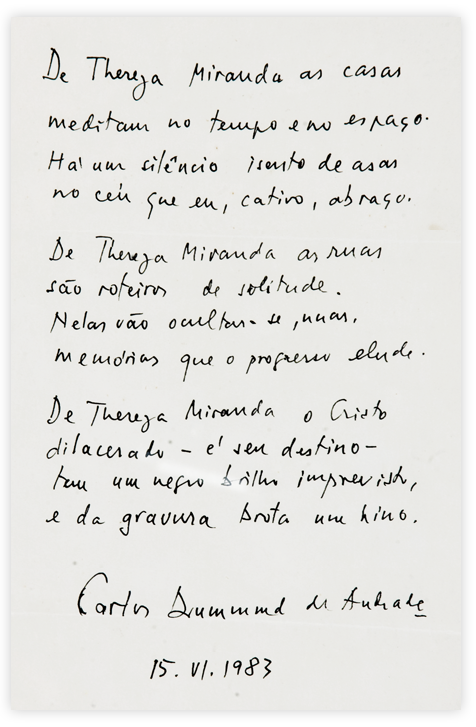 De Thereza Miranda as casas
meditam no tempo e no espaço.
Há um silêncio isento de asas
no céu que eu, cativo, abraço.
De Thereza Miranda as ruas
são roteiros de solitude.
Nelas vão ocultar-se, nuas,
memórias que o progresso elude.
De Thereza Miranda o Cristo
dilacerado – é seu destino –
tem um negro brilho imprevisto,
e da gravura brota um hino.
Carlos Drummond de Andrade
15. VI. 1983